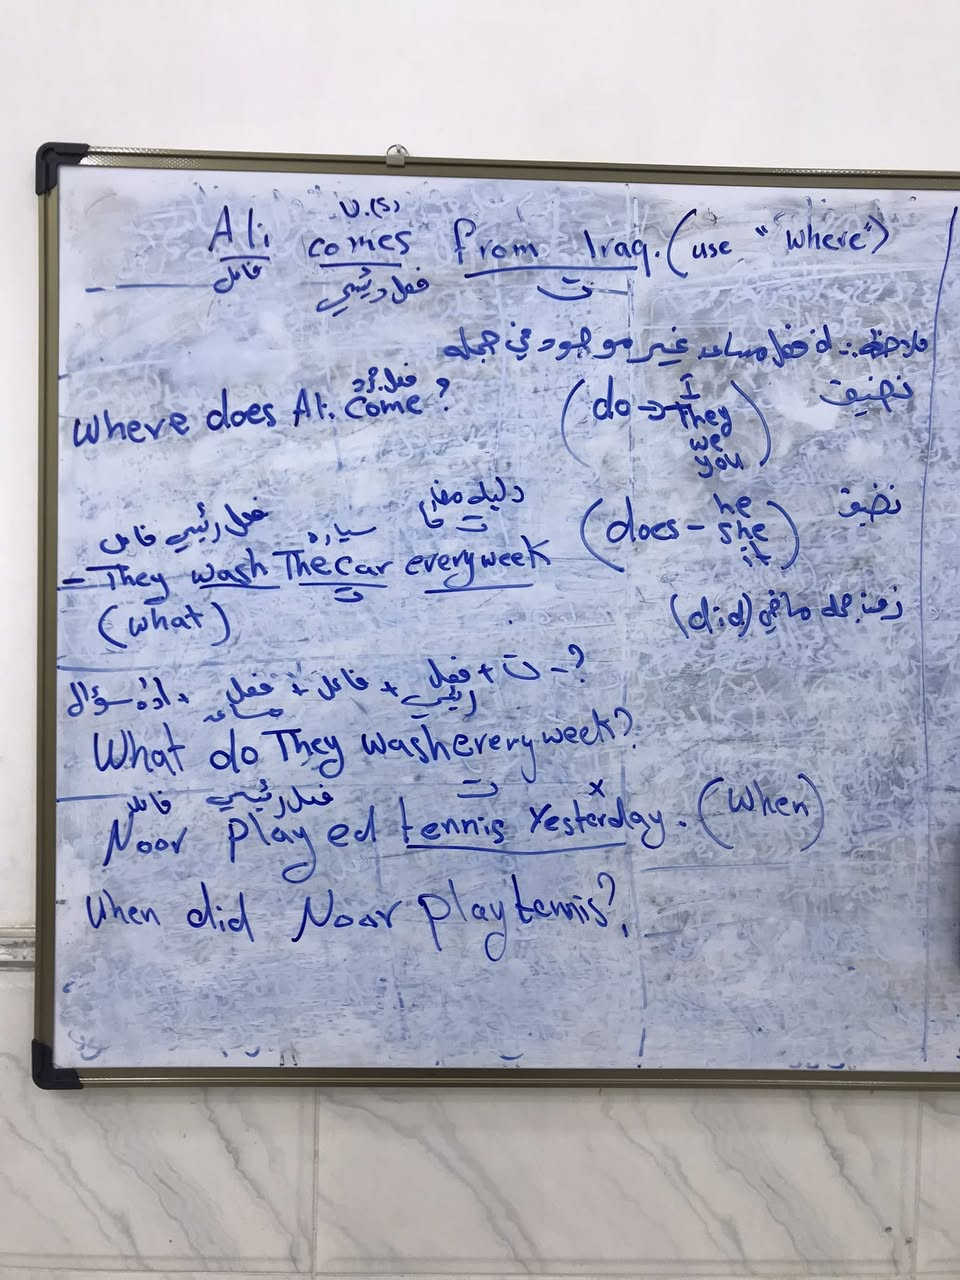 v.(s)
Ali comes from Iraq. (use "where")
فاعل فعل رئيسي ت
ملاحظة :- اذ فعل مساعد غير موجود في جملة
فعل مجرد
Where does Ali come?
نضيف (do → I They we you)
نضيف (does - he she it)
فاعل فعل رئيسي سيارة ت
- They wash The car every week
ت
(what)
زمن جملة ماضي (did)
اداة سؤال + فعل مساعد + فاعل + فعل رئيسي + ت - ?
What do They wash every week?
فاعل فعل رئيسي ت x
Noor played tennis Yesterday. (When)
When did Noor play tennis?